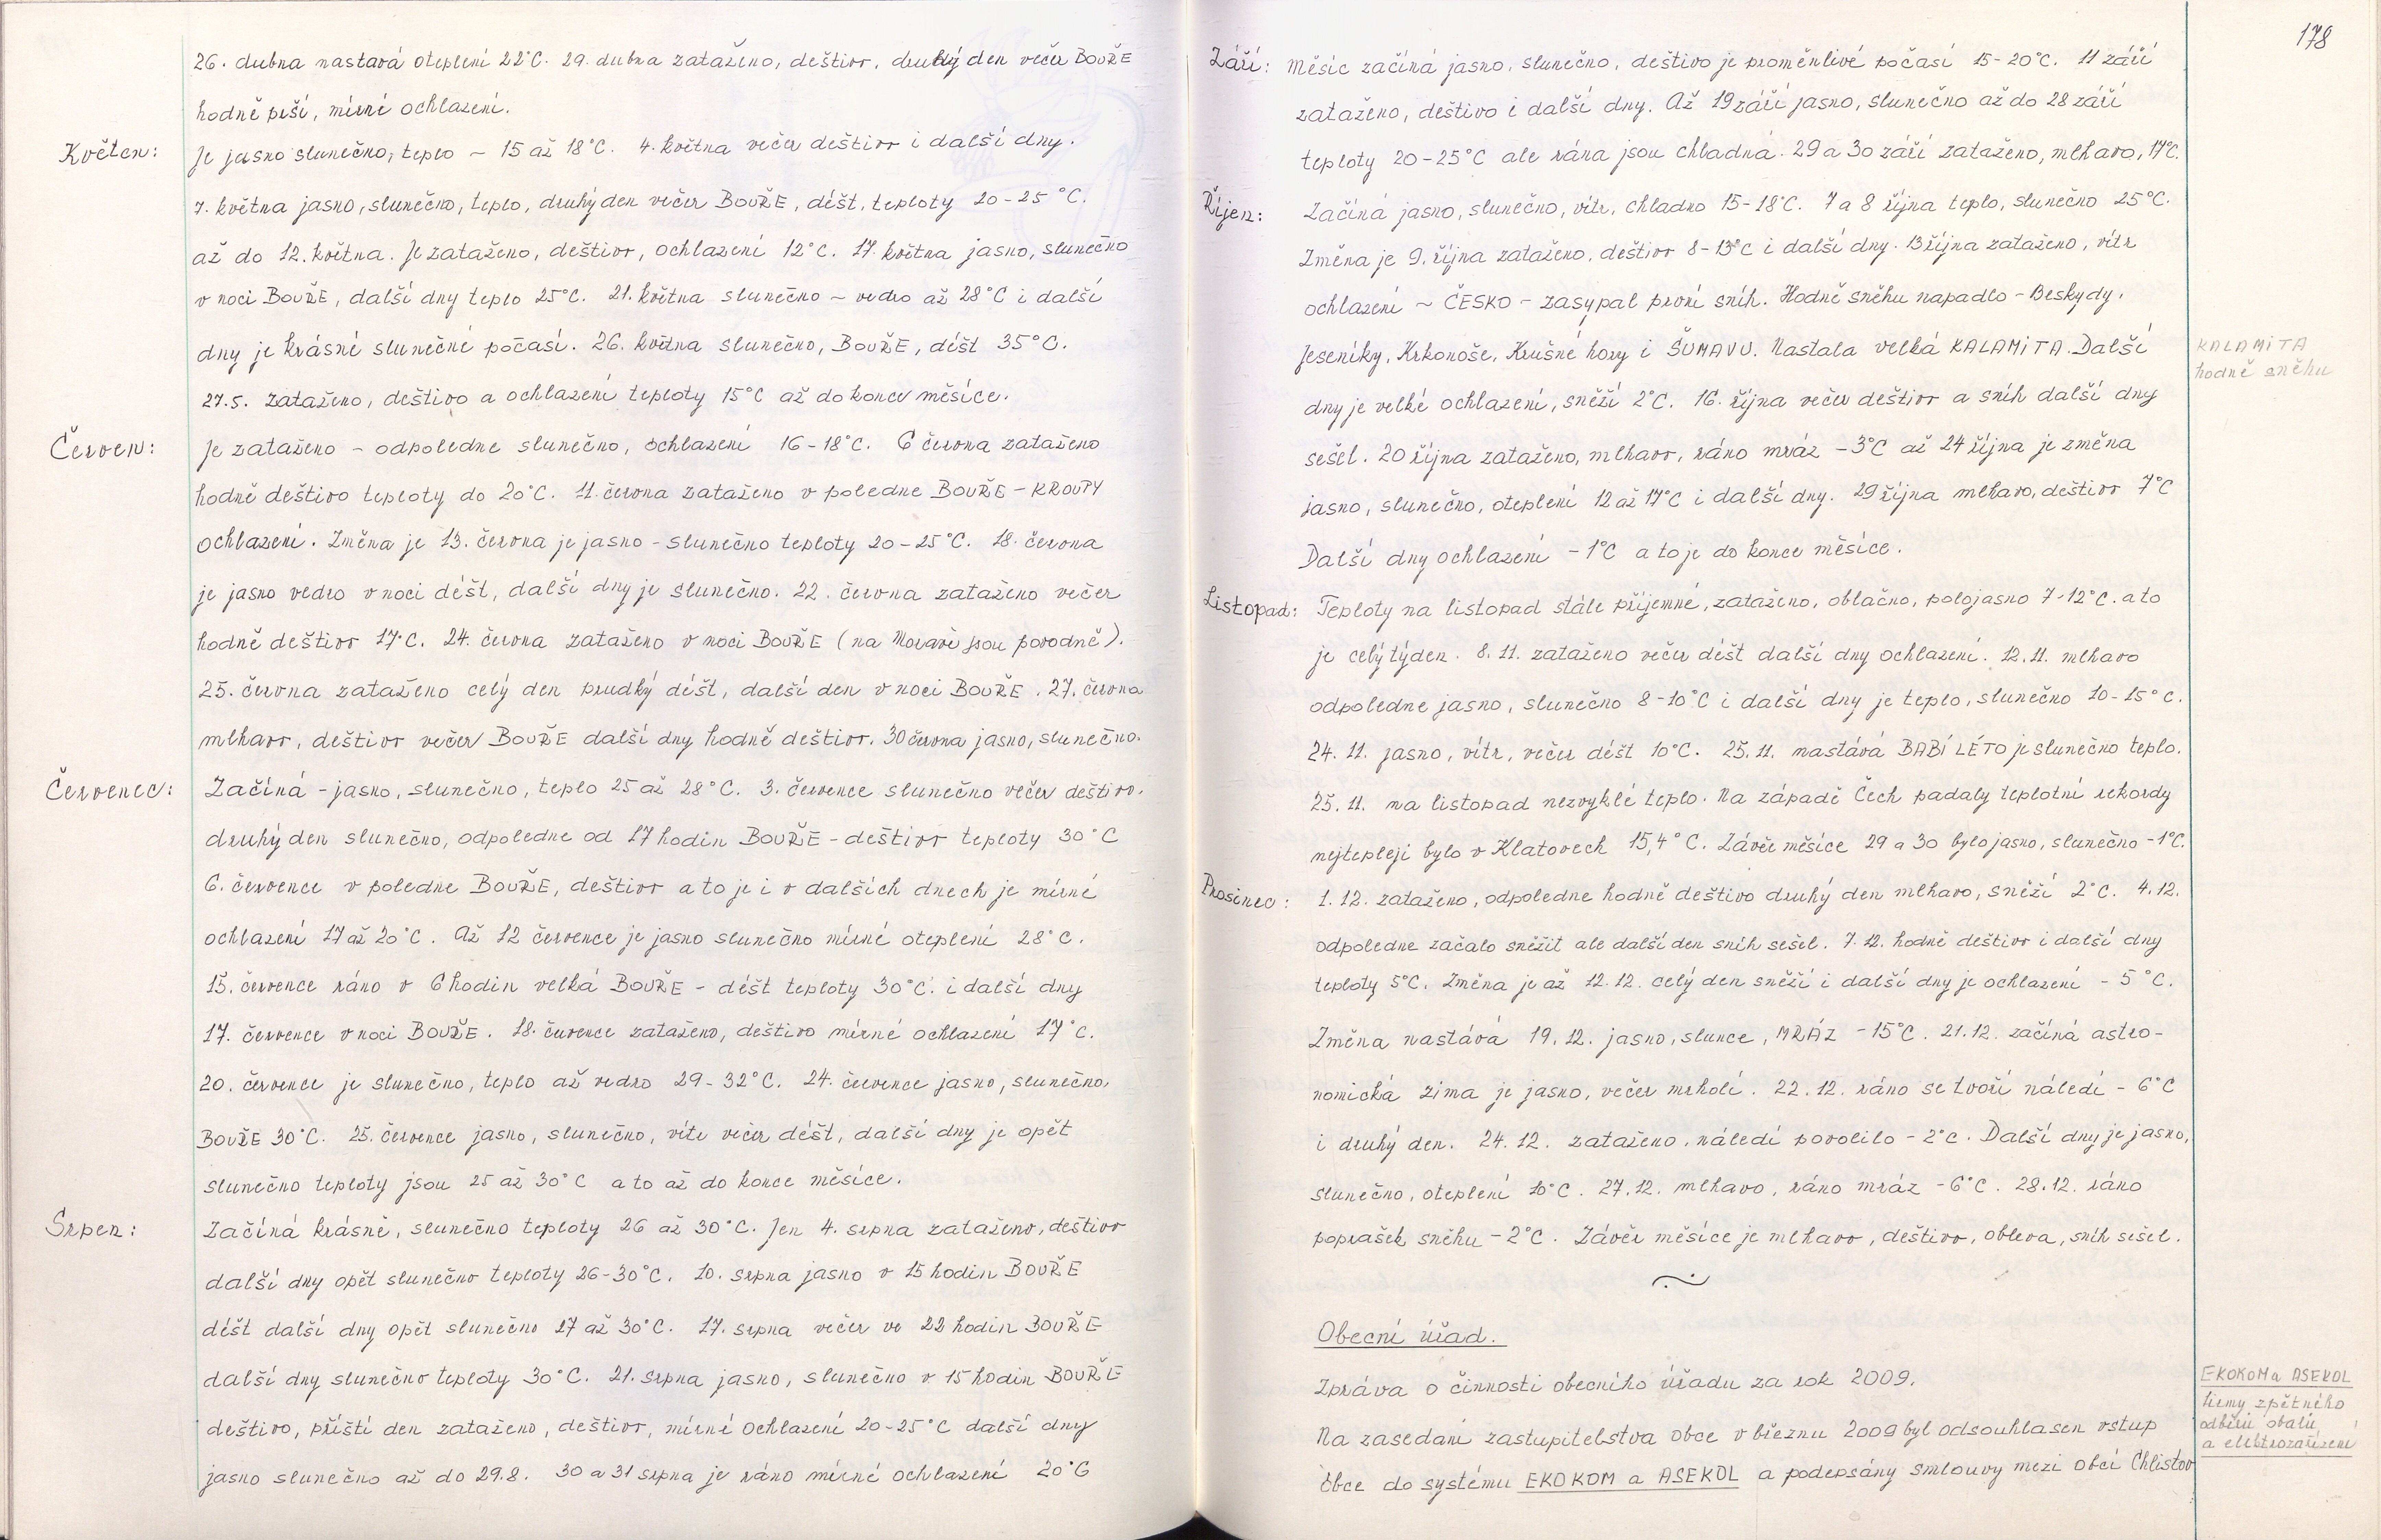 26. dubna nastává oteplení 22°C. 29. dubna zataženo, deštivo, druhý den večer BOUŘE
hodně prší, mírné ochlazení.
Květen: Je jasno slunečno, teplo ~ 15 až 18°C. 4. května večer deštivo i další dny.
7. května jasno, slunečno, teplo, druhý den večer BOUŘE, déšt, teploty 20-25 °C.
až do 12. května. Je zataženo, deštivo, ochlazení 12°C. 17. května jasno, slunečno
v noci BOUŘE, další dny teplo 25°C. 21. května slunečno ~ vedro až 28°C i další
dny je krásné slunečné počasí. 26. května slunečno, BOUŘE, déšt 35°C.
27.5. zataženo, deštivo a ochlazení teploty 15°C až do konce měsíce.
Červen: Je zataženo ~ odpoledne slunečno, ochlazení 16-18°C. 6 června zataženo
hodně deštivo teploty do 20°C. 11. června zataženo v poledne BOUŘE - KROUPY
ochlazení. Změna je 13. června je jasno - slunečno teploty 20-25°C. 18. června
je jasno vedro v noci déšt, další dny je slunečno. 22. června zataženo večer
hodně deštivo 17°C. 24. června zataženo v noci BOUŘE (na Moravě jsou povodně).
25. června zataženo celý den prudký déšt, další den v noci BOUŘE. 27. června
mlhavo, deštivo večer BOUŘE další dny hodně deštivo. 30 června jasno, slunečno.
Červenec: Začíná - jasno, slunečno, teplo 25 až 28°C. 3. července slunečno večer deštivo.
druhý den slunečno, odpoledne od 17 hodin BOUŘE - deštivo teploty 30°C
6. července v poledne BOUŘE, deštivo a to je i v dalších dnech je mírné
ochlazení 17 až 20°C. Až 12 července je jasno slunečno mírné oteplení 28°C.
15. července ráno v 6 hodin velká BOUŘE - déšt teploty 30°C. i další dny
17. července v noci BOUŘE. 18. července zataženo, deštivo mírné ochlazení 17°C.
20. července je slunečno, teplo až vedro 29-32°C. 24. července jasno, slunečno,
BOUŘE 30°C. 25. července jasno, slunečno, vítr večer déšt, další dny je opět
slunečno teploty jsou 25 až 30°C a to až do konce měsíce.
Srpen: Začíná krásně, slunečno teploty 26 až 30°C. Jen 4. srpna zataženo, deštivo
další dny opět slunečno teploty 26-30°C. 10. srpna jasno v 15 hodin BOUŘE
déšt další dny opět slunečno 27 až 30°C. 17. srpna večer ve 22 hodin BOUŘE
další dny slunečno teploty 30°C. 21. srpna jasno, slunečno v 15 hodin BOUŘE
deštivo, příští den zataženo, deštivo, mírné ochlazení 20-25°C další dny
jasno slunečno až do 29.8. 30 a 31 srpna je ráno mírné ochlazení 20°C
178
Září: Měsíc začíná jasno, slunečno, deštivo je proměnlivé počasí 15-20°C. 11 září
zataženo, deštivo i další dny. Až 19 září jasno, slunečno až do 28 září
teploty 20-25°C ale rána jsou chladná. 29 a 30 září zataženo, mlhavo, 17°C.
Říjen: Začíná jasno, slunečno, vítr, chladno 15-18°C. 7 a 8 října teplo, slunečno 25°C.
Změna je 9. října zataženo, deštivo 8-13°C i další dny. 13 října zataženo, vítr
ochlazení ~ ČESKO - zasypal první sníh. Hodně sněhu napadlo - Beskydy.
Jeseníky, Krkonoše, Krušné hory i ŠUMAVU. Nastala velká KALAMITA. Další
KALAMITA
hodně sněhu
dny je velké ochlazení, sněží 2°C. 16. října večer deštivo a sníh další dny
sešel. 20 října zataženo, mlhavo, ráno mráz -3°C až 24 října je změna
jasno, slunečno, oteplení 12 až 17°C i další dny. 29 října mlhavo, deštivo 7°C
Další dny ochlazení -1°C a to je do konce měsíce.
Listopad: Teploty na listopad stále příjemné, zataženo, oblačno, polojasno 7-12°C. a to
je celý týden. 8. 11. zataženo večer déšt další dny ochlazení. 12. 11. mlhavo
odpoledne jasno, slunečno 8-10°C i další dny je teplo, slunečno 10-15°C.
24. 11. jasno, vítr, večer déšt 10°C. 25. 11. nastává BABÍ LÉTO je slunečno teplo.
25. 11. na listopad nezvyklé teplo. Na západě Čech padaly teplotní rekordy
nejtepleji bylo v Klatovech 15,4°C. Závěr měsíce 29 a 30 bylo jasno, slunečno -1°C.
Prosinec: 1. 12. zataženo, odpoledne hodně deštivo druhý den mlhavo, sněží 2°C. 4.12.
odpoledne začalo sněžit ale další den sníh sešel. 7. 12. hodně deštivo i další dny
teploty 5°C. Změna je až 12. 12. celý den sněží i další dny je ochlazení - 5°C.
Změna nastává 19. 12. jasno, slunce, MRÁZ -15°C. 21. 12. začíná astro-
nomická zima je jasno, večer mrholí. 22. 12. ráno se tvoří náledí - 6°C
i druhý den. 24. 12. zataženo. náledí povolilo - 2°C. Další dny je jasno,
slunečno, oteplení 10°C. 27. 12. mlhavo, ráno mráz -6°C. 28. 12. ráno
poprašek sněhu -2°C. Závěr měsíce je mlhavo, deštivo, obleva, sníh sešel.
Obecní úřad.
Zpráva o činnosti obecního úřadu za rok 2009.
Na zasedání zastupitelstva obce v březnu 2009 byl odsouhlasen vstup
obce do systému EKOKOM a ASEKOL a podepsány smlouvy mezi obcí Chlistov
EKOKOM a ASEKOL
firmy zpětného
odběru obalů
a elektrozařízení